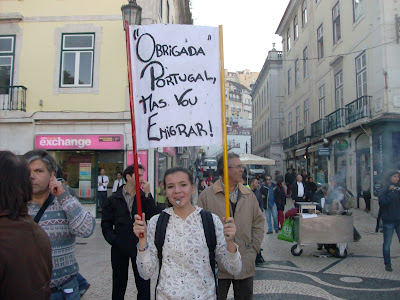 "Obrigada
Portugal,
Mas vou
Emigrar!
exchange